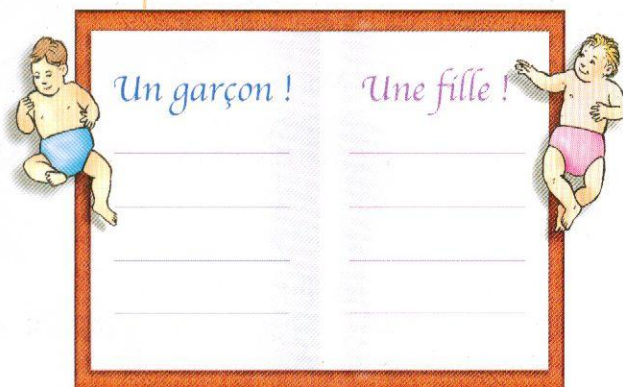 Un garçon !
Une fille !